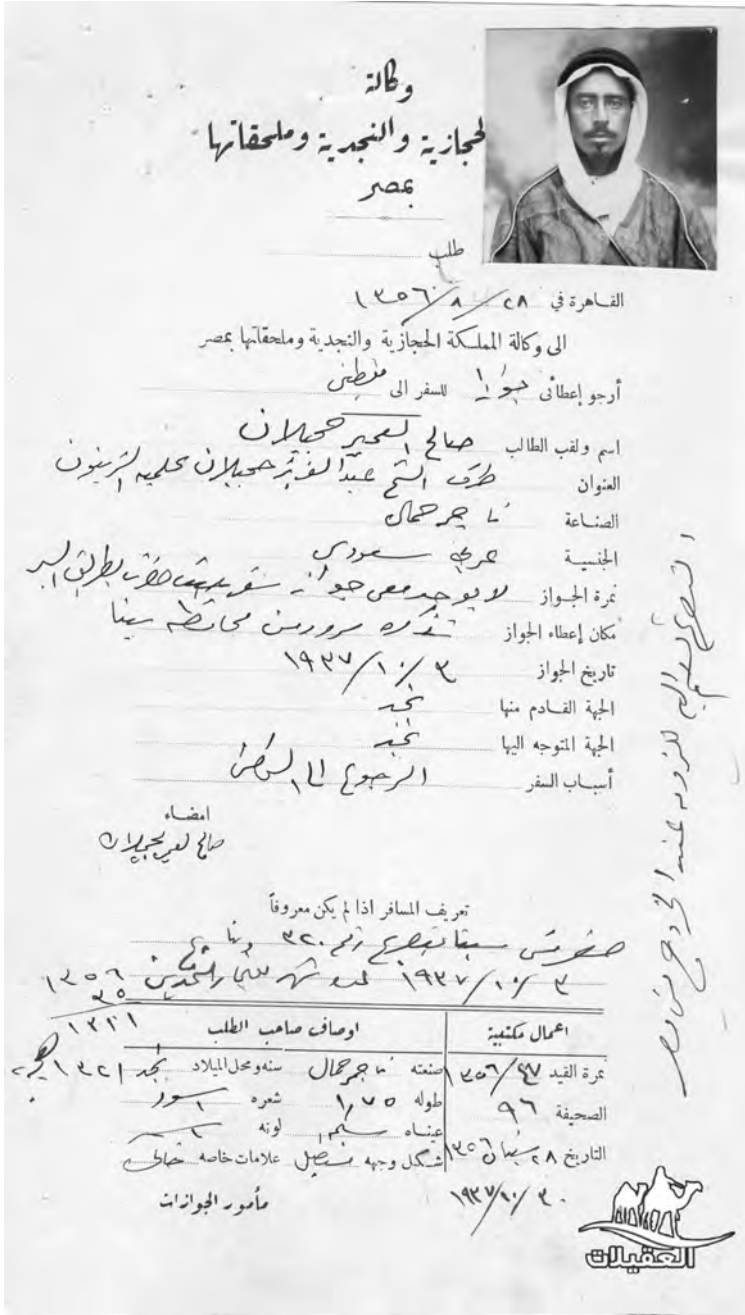 وكالة
الحجازية والنجدية وملحقاتها
بمصر
طلب
القاهرة في ٢٨/٨/١٣٥٦
الى وكالة المملكة الحجازية والنجدية وملحقاتها بمصر
أرجو إعطائى جوازا للسفر الى فلسطين
اسم ولقب الطالب صالح العمير حجيلان
العنوان طرف الشيخ عبد العزيز حجيلان بحلمية الزيتون
الصناعة تاجر جمال
الجنسية عربي سعودي
نمرة الجواز لا يوجد معي جواز بطريق البر
مكان إعطاء الجواز تذكرة مرور من محافظة سينا
تاريخ الجواز ٣/١٠/١٩٣٧
الجهة القادم منها نجد
الجهة المتوجه اليها نجد
أسباب السفر الرجوع الى
امضاء
صالح العمير الحجيلان
تعريف المسافر اذا لم يكن معروفاً
رقم ٣٢٠
٣/١٠/١٩٣٧
١٣٥٦
٣٥
١٣٢١
اعمال مكتبية
اوصاف صاحب الطلب
نمرة القيد ٤٧/١٣٥٦ صنعته تاجر جمال سنه ومحل الميلاد نجد ١٣٢١
الصحيفة ٩٦ طوله ١,٧٥ شعره اسود
عيناه لونه
التاريخ ٢٨ شعبان ١٣٥٦ شكل وجهه مستطيل علامات خاصه خالى
٣٠/١٠/١٩٣٧
مأمور الجوازات
العقيلات